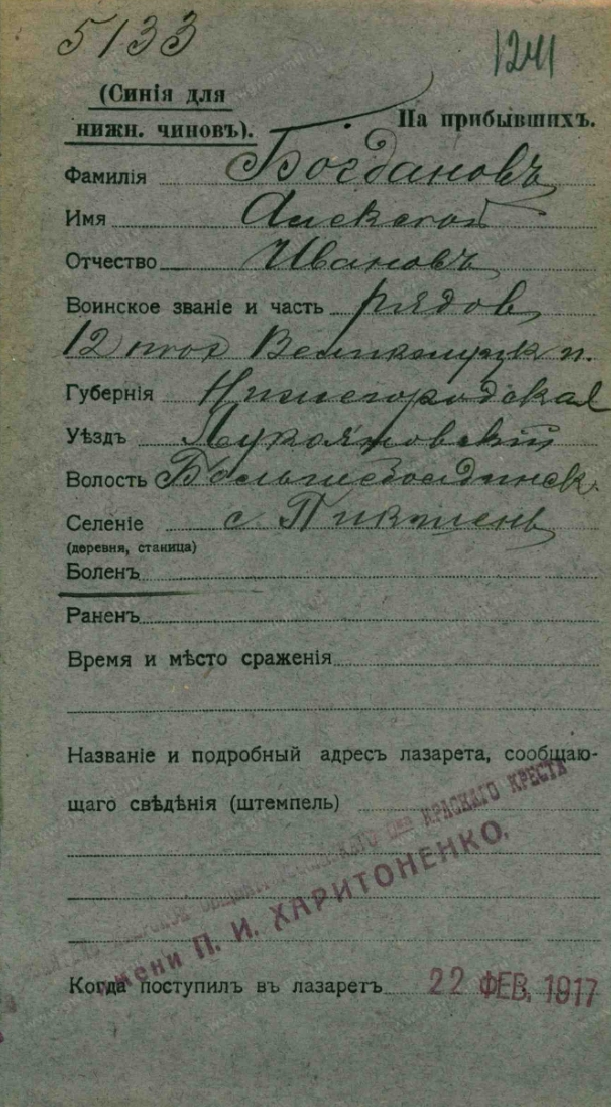 5133
1241
(Синія для
нижн. чиновъ).
На прибывшихъ.
Фамилія Богдановъ
Имя Алексей
Отчество Ивановъ
Воинское званіе и часть рядов
12 пех Великолуцк п.
Губернія Нижегородская
Уѣздъ Лукояновский
Волость Большеболдинск.
Селеніе с Пикшень
(деревня, станица)
Боленъ
Раненъ
Время и мѣсто сраженія
Названіе и подробный адресъ лазарета, сообщаю-
щаго свѣдѣнія (штемпель)
КРАСНАГО КРЕСТА
имени П. И. ХАРИТОНЕНКО.
Когда поступилъ въ лазаретъ 22 ФЕВ. 1917